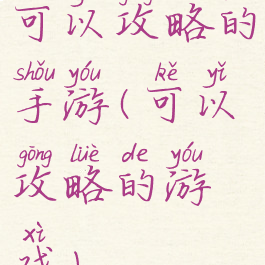 可以攻略的
shǒu yóu kě yǐ
手游(可以
gōng lüè de yóu
攻略的游
xì
戏)